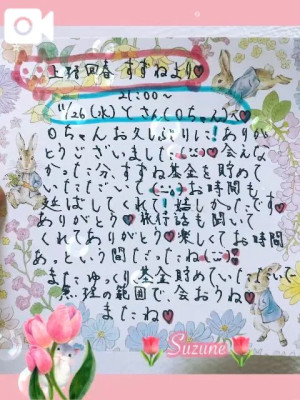 土猪回春 すずねより♥
21:00〜
11/26(水)Yさん(Oちゃん)へ♥
Oちゃんお久しぶりに!ありが
とうございました(;;)♥会えな
かった分、すずね基金を貯めて
いただいて(;_;)お時間も
延ばしてくれて嬉しかったです
ありがとう♥旅行話も聞いて
くれてありがとう♥楽しくてお時間
あっという間だったね(;;)♥
またゆっくり基金貯めていただいて
無理の範囲で、会おうね♥
またね♥
Suzune